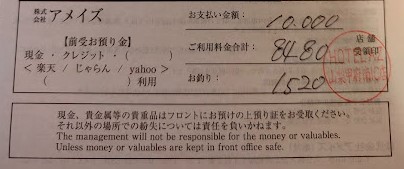 株式会社 アメイズ
お支払い金額： 10,000
【前受お預り金】
ご利用料金合計： 8480
店舗受領印
現金 ・ クレジット ・ (　　　)
< 楽天 / じゃらん / yahoo >
(　　　　　) 利用
お釣り： 1520
現金、貴金属等の貴重品はフロントにお預けの上預り証をお受取ください。
それ以外の場所での紛失については責任を負いかねます。
The management will not be responsible for the money or valuables.
Unless money or valuables are kept in front office safe.